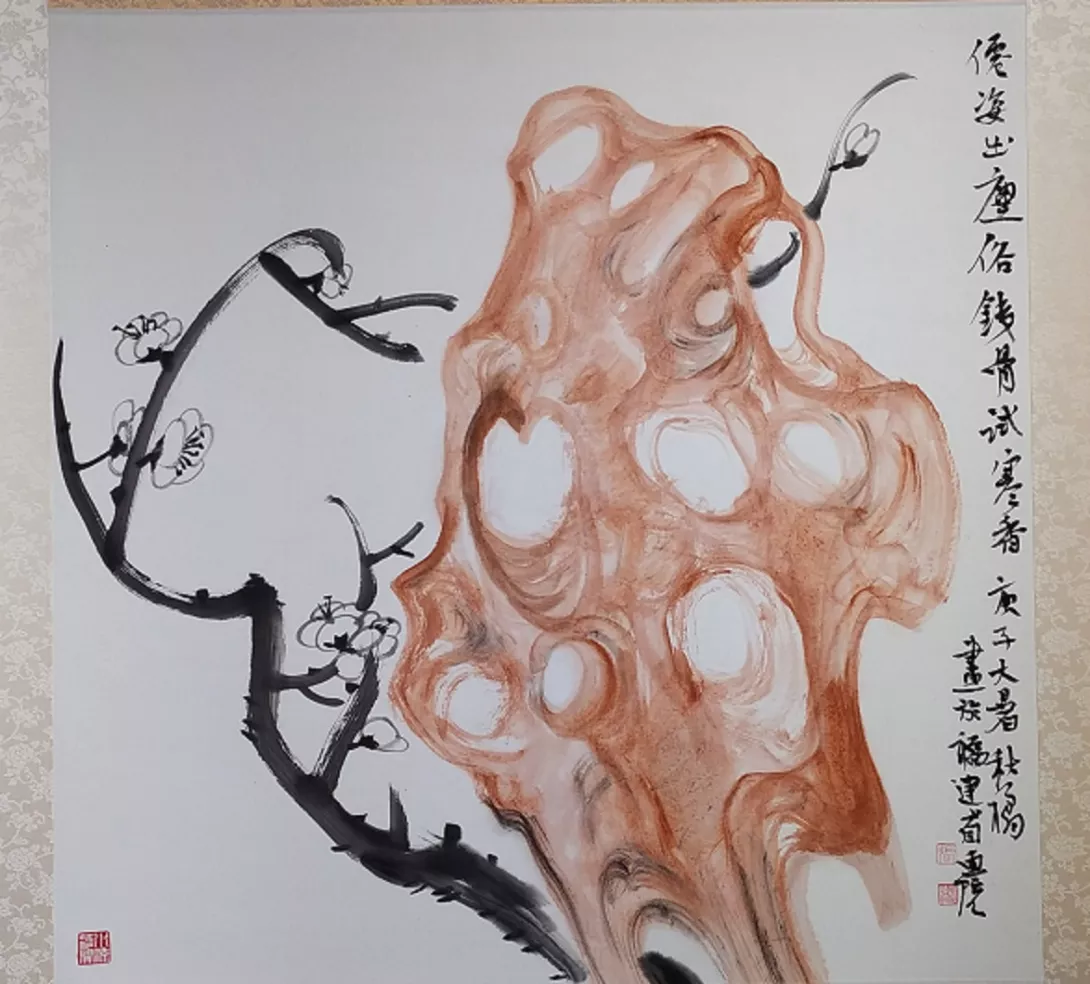 僊姿出塵俗鐵骨試寒香 庚子大暑
畫於福建省畫院